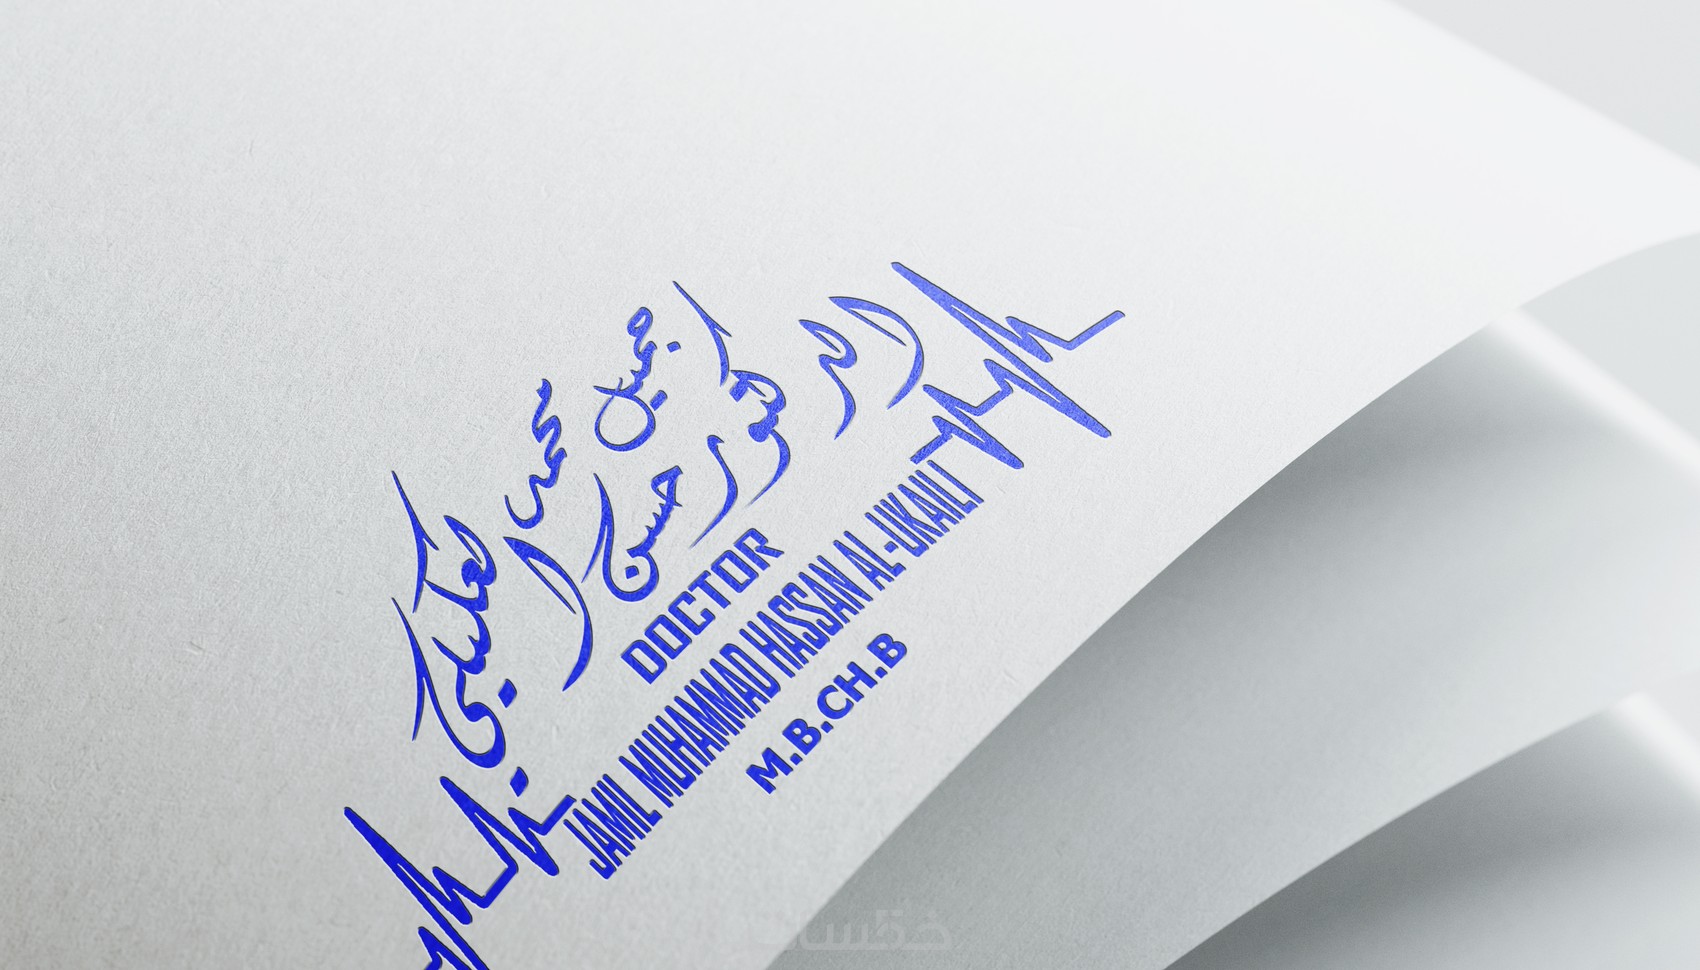 الدكتور جميل محمد حسن العكيلي
DOCTOR
JAMIL MUHAMMAD HASSAN AL-UKAILI
M.B.CH.B
خمسات